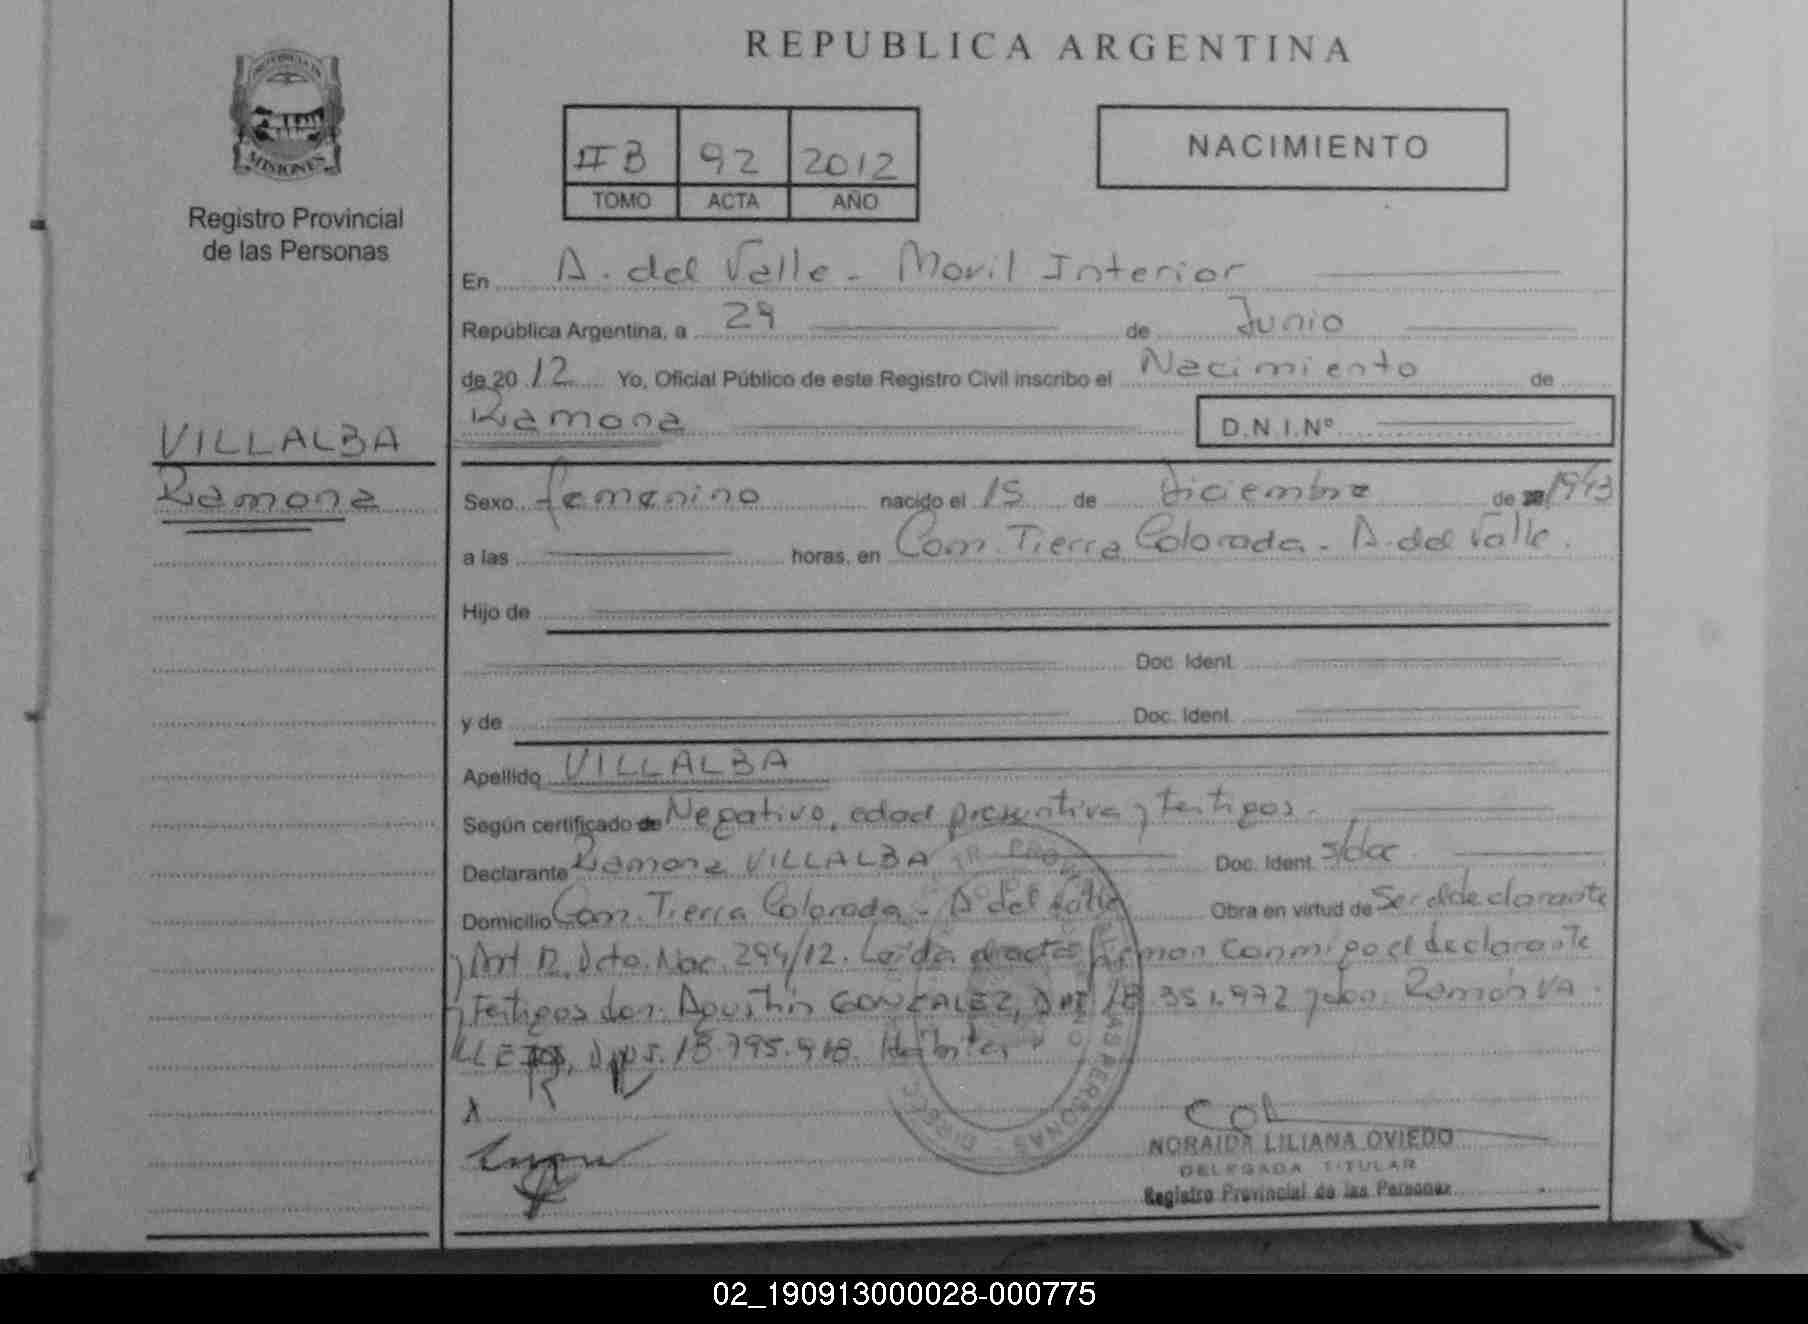 PROVINCIA DE
MISIONES
Registro Provincial
de las Personas
VILLALBA
Ramona
REPUBLICA ARGENTINA
II B 92 2012
TOMO ACTA AÑO
NACIMIENTO
En A. del Valle - Movil Interior
República Argentina, a 29 de Junio
de 20 12 Yo, Oficial Público de este Registro Civil inscribo el Nacimiento de
Ramona D.N.I.Nº
Sexo femenino nacido el 15 de Diciembre de 1943
a las horas, en Com. Tierra Colorada - A. del Valle.
Hijo de
Doc. Ident.
y de Doc. Ident.
Apellido VILLALBA
Según certificado de Negativo, edad presuntiva y testigos.
Declarante Ramona VILLALBA Doc. Ident. s/doc.
Domicilio Com. Tierra Colorada - Aº del Valle Obra en virtud de Ser el declarante
y Art 12. Dcto. Nac. 294/12. Leida el acta firman conmigo el declarante
y testigos don: Agustin GONZALEZ, DNI 18.351.972 y don. Ramón VA
LLEJOS, DNI. 18.795.918.
X
NORAIDA LILIANA OVIEDO
DELEGADA TITULAR
Registro Provincial de las Personas
02_190913000028-000775